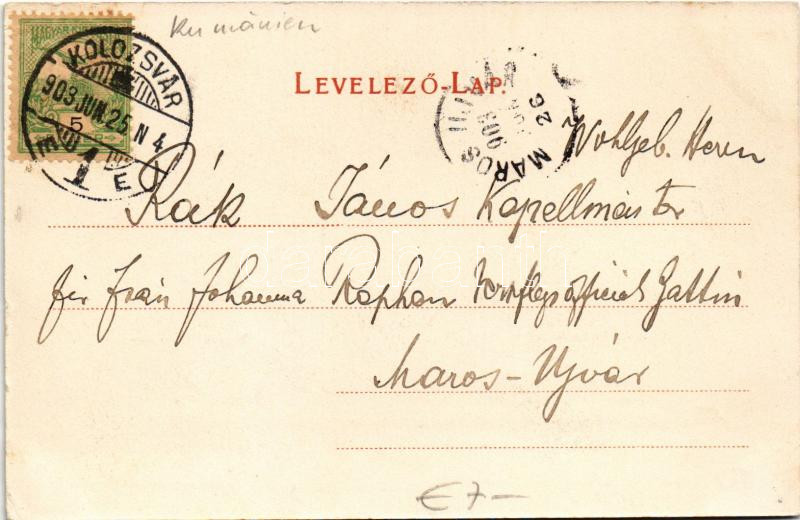 Rumänien
MAGYAR KIR
5
KOLOZSVÁR
903 JUN. 25 N 4
LEVELEZŐ-LAP.
MAROS UJVÁR
903
26
Wohlgeb. Herrn
Rák János Kapellmeister
für Frau Johanna Raphan Gattin
Maros-Ujvár
€ 7–